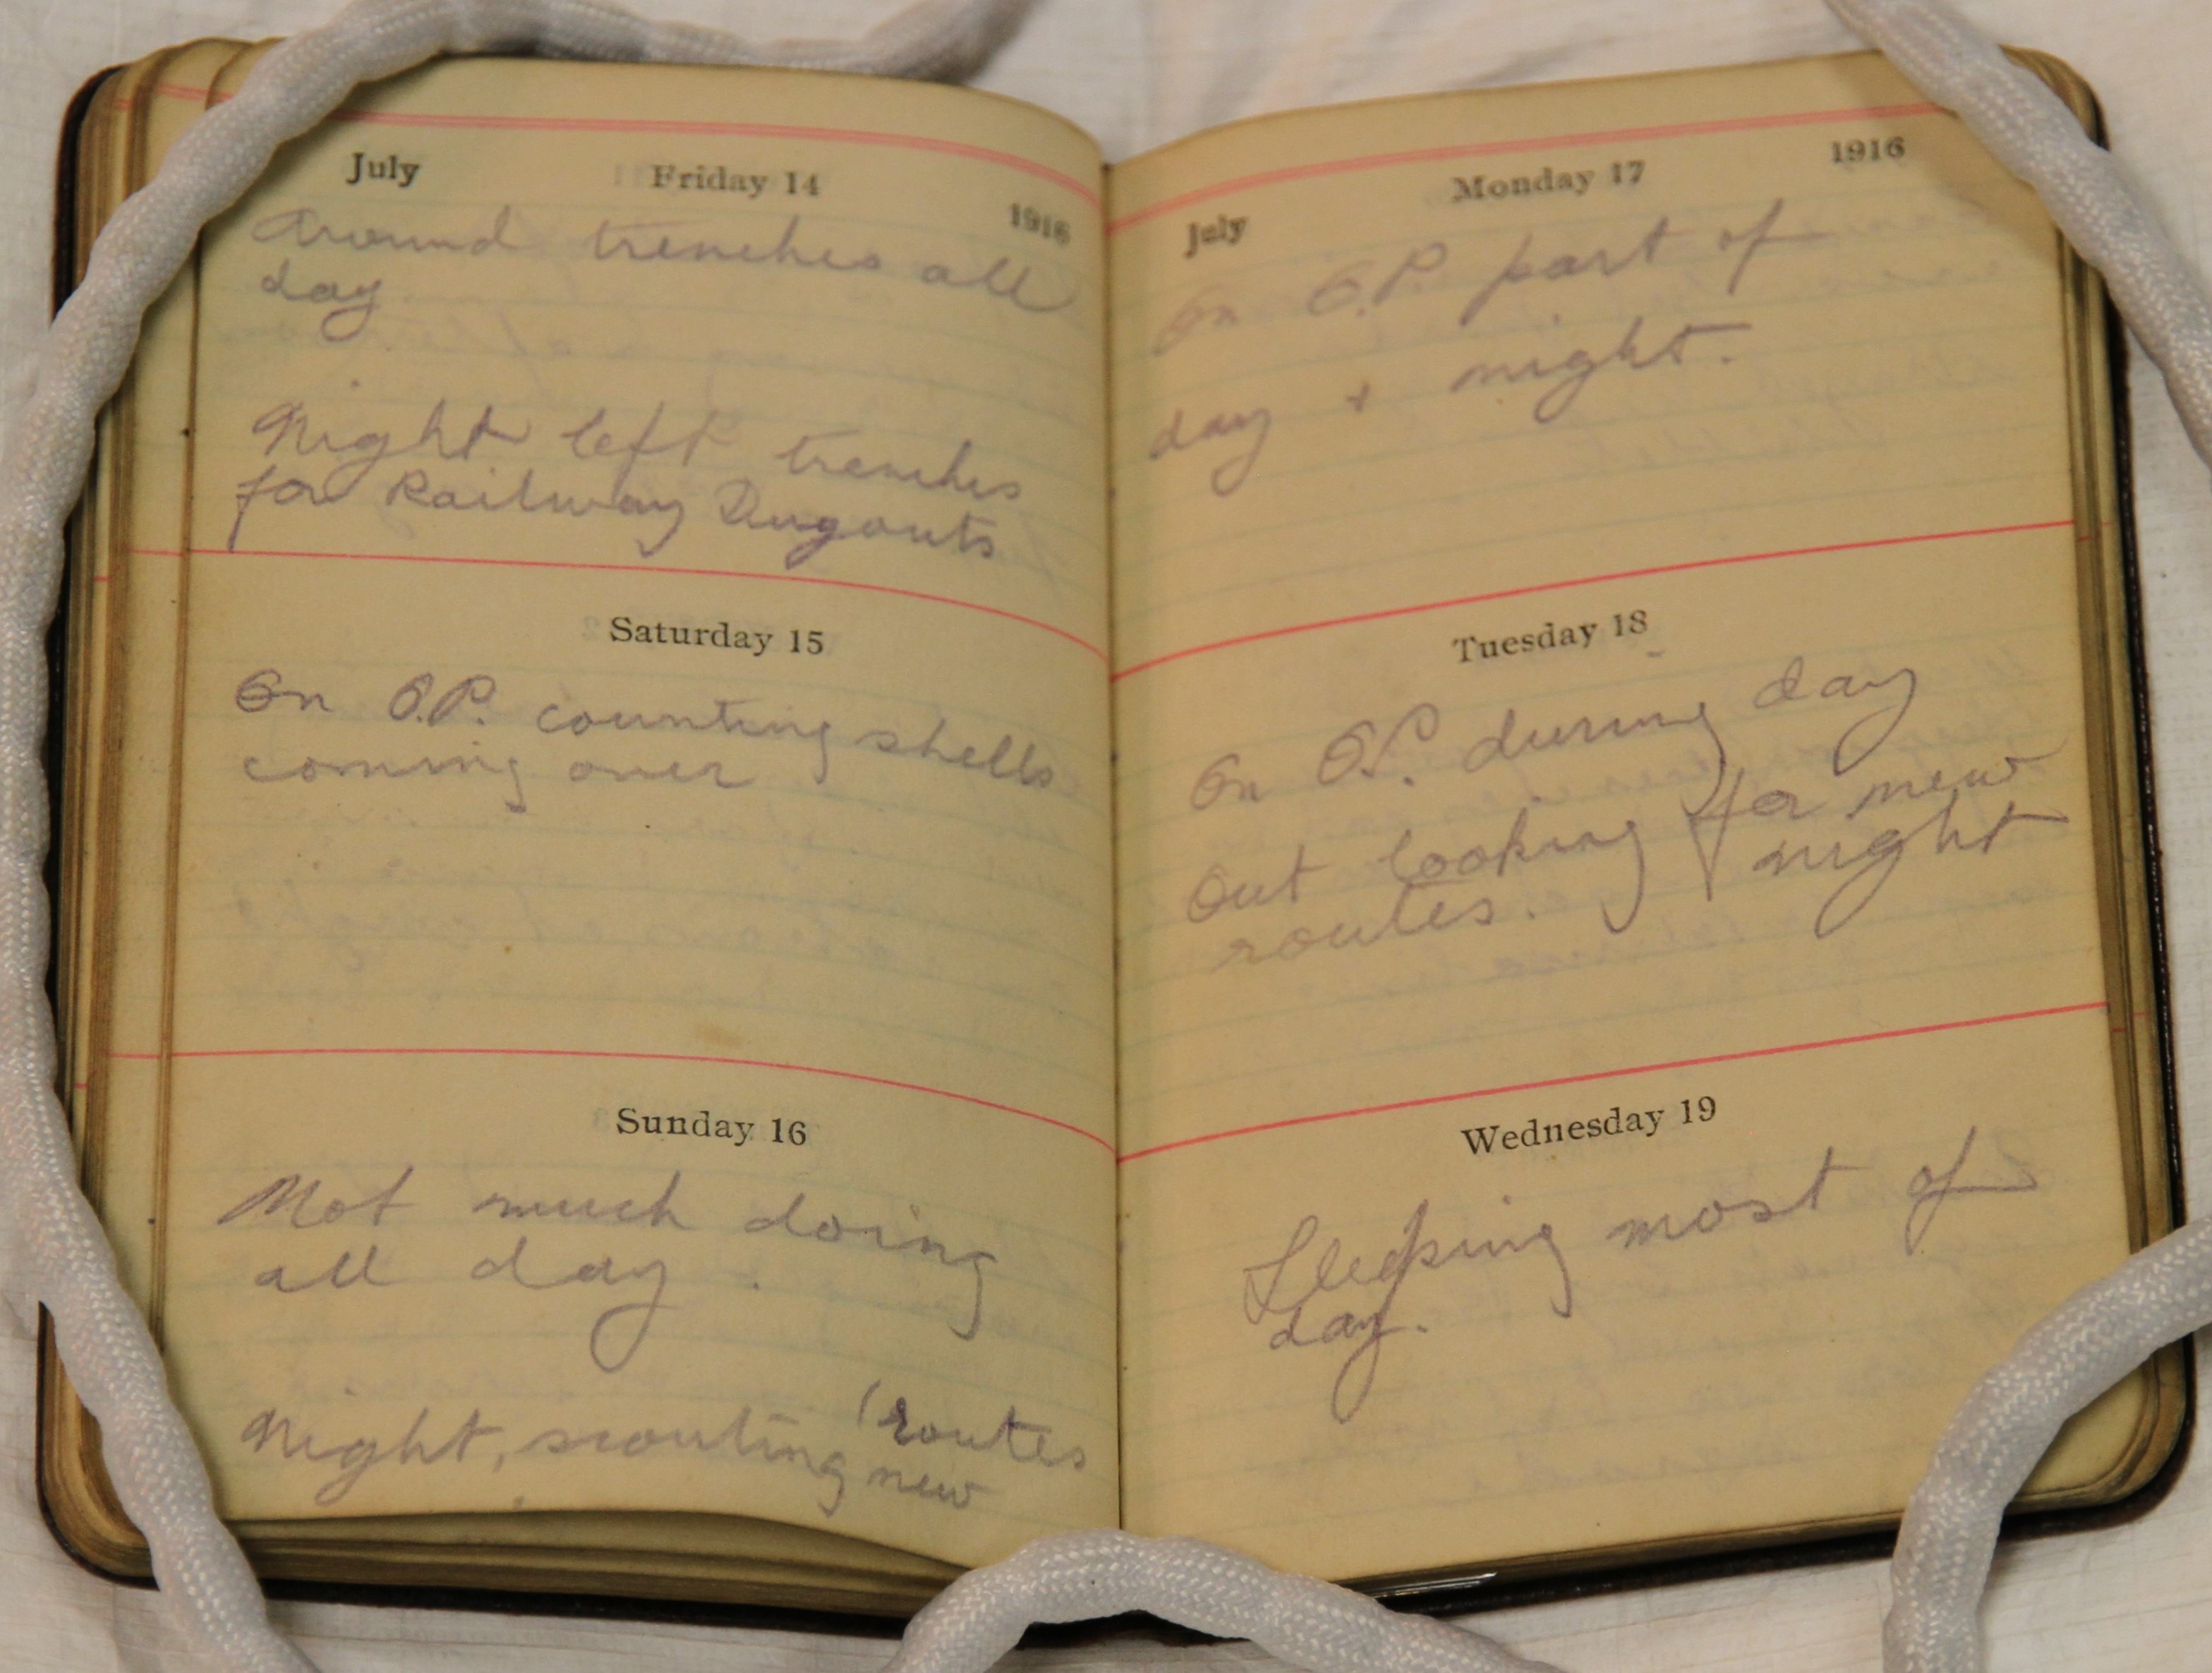 July Friday 14 1916
Around trenches all
day
Night left trenches
for Railway Dugouts
Saturday 15
On O.P. counting shells
coming over
Sunday 16
Not much doing
all day.
Night, scouting (routes
new
July Monday 17 1916
On O.P. part of
day + night.
Tuesday 18
On O.P. during day
Out looking for new
routes. night
Wednesday 19
Sleeping most of
day.